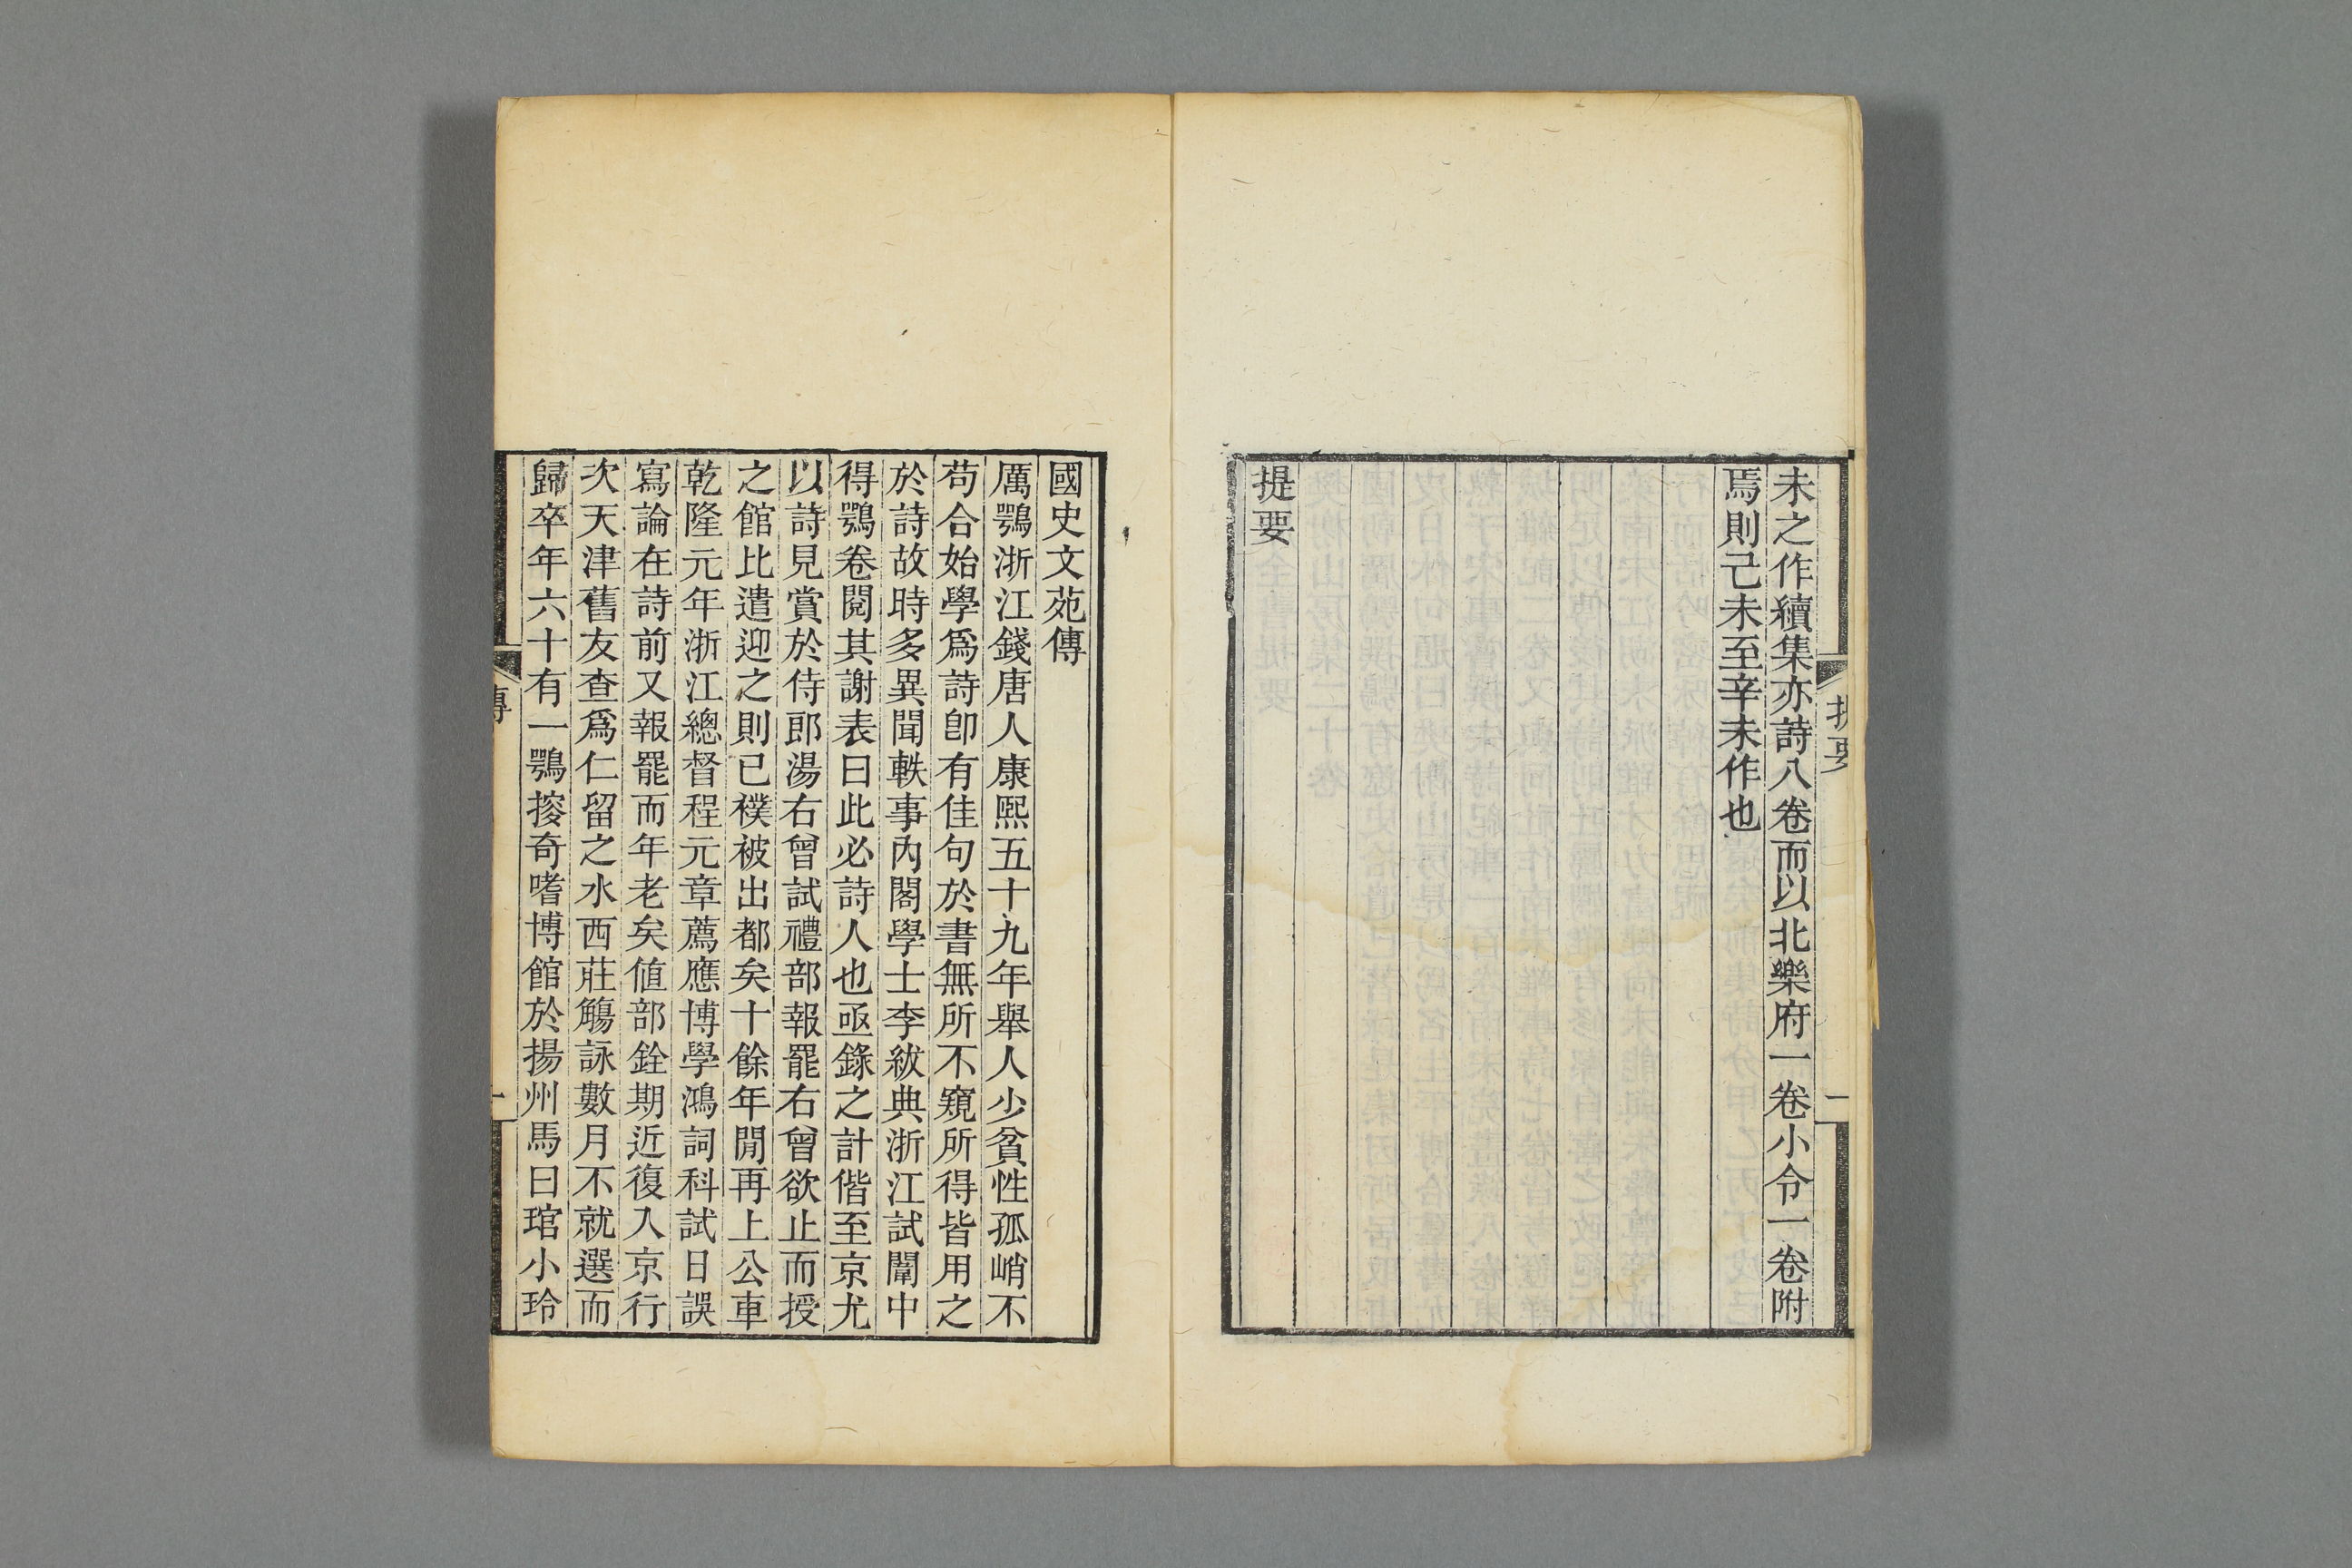 未之作續集亦詩八卷而以北樂府一卷小令一卷附
焉則己未至辛未作也
提要
國史文苑傳
厲鶚浙江錢唐人康熙五十九年舉人少貧性孤峭不
苟合始學爲詩卽有佳句於書無所不窺所得皆用之
於詩故時多異聞軼事內閣學士李紱典浙江試闈中
得鶚卷閱其謝表曰此必詩人也亟錄之計偕至京尤
以詩見賞於侍郎湯右曾試禮部報罷右曾欲止而授
之館比遣迎之則已襆被出都矣十餘年閒再上公車
乾隆元年浙江總督程元章薦應博學鴻詞科試日誤
寫論在詩前又報罷而年老矣値部銓期近復入京行
次天津舊友查爲仁留之水西莊觴詠數月不就選而
歸卒年六十有一鶚搜奇嗜博館於揚州馬曰琯小玲